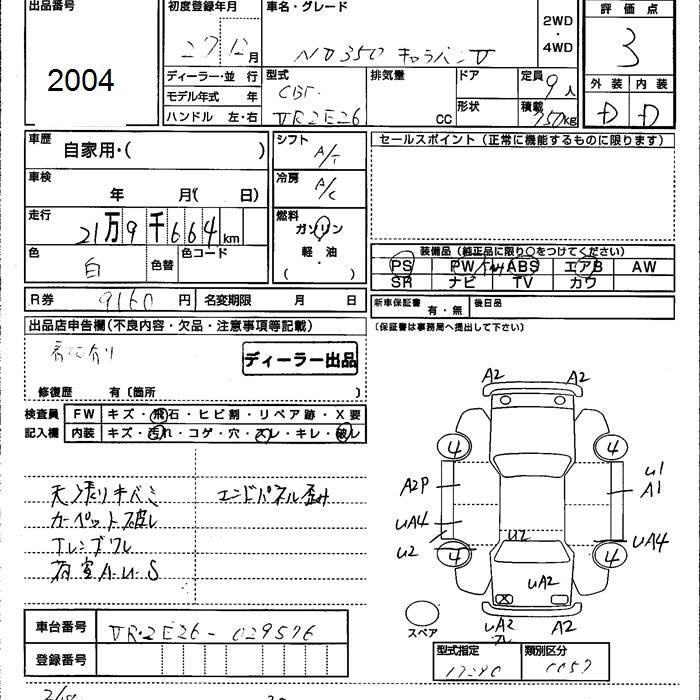 出品番号
2004
初度登録年月
27 12 月
ディーラー・並 行
モデル年式 年
ハンドル 左・右
車名・グレード
NV350 キャラバン V
2WD
・
4WD
型式
CBF-
VR2E26
排気量
CC
ドア
形状
定員
9人
積載
750kg
評価点
3
外装 内装
D D
車歴
自家用・( )
車検
年 月( 日)
走行
21万9千664km
色
白
色替
色コード
シフト
A/T
冷房
A/C
燃料
ガソリン
軽・油
( ・ )
R券 9160 円 名変期限 月 日
セールスポイント(正常に機能するものに限ります)
装備品(純正品に限り○をつけてください)
PS PW ABS エアB AW
SR ナビ TV カワ
新車保証書 有・無 後日品
(保証書は事務局へ提出して下さい)
出品店申告欄(不良内容・欠品・注意事項等記載)
ディーラー出品
修復歴 有〔箇所 〕
検査員
記入欄
FW キズ・飛石・ヒビ割・リペア跡・X要
内装 キズ・汚れ・コゲ・穴・スレ・キレ・破レ
天張りキバミ
エンドパネル歪み
カーペット破レ
荷室A・U・S
A2 A2
4 4
A2P
U1
A1
UA4
U2
U2
UA4
4 4
UA2
X
UA2
A2
スペア
車台番号 VR2E26-029576
登録番号
型式指定
類別区分
0057